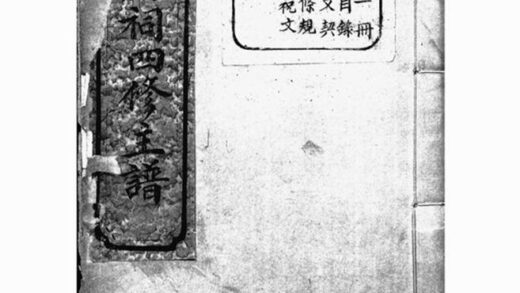 一冊
目錄
文契
條規
祝文
祠四修主譜